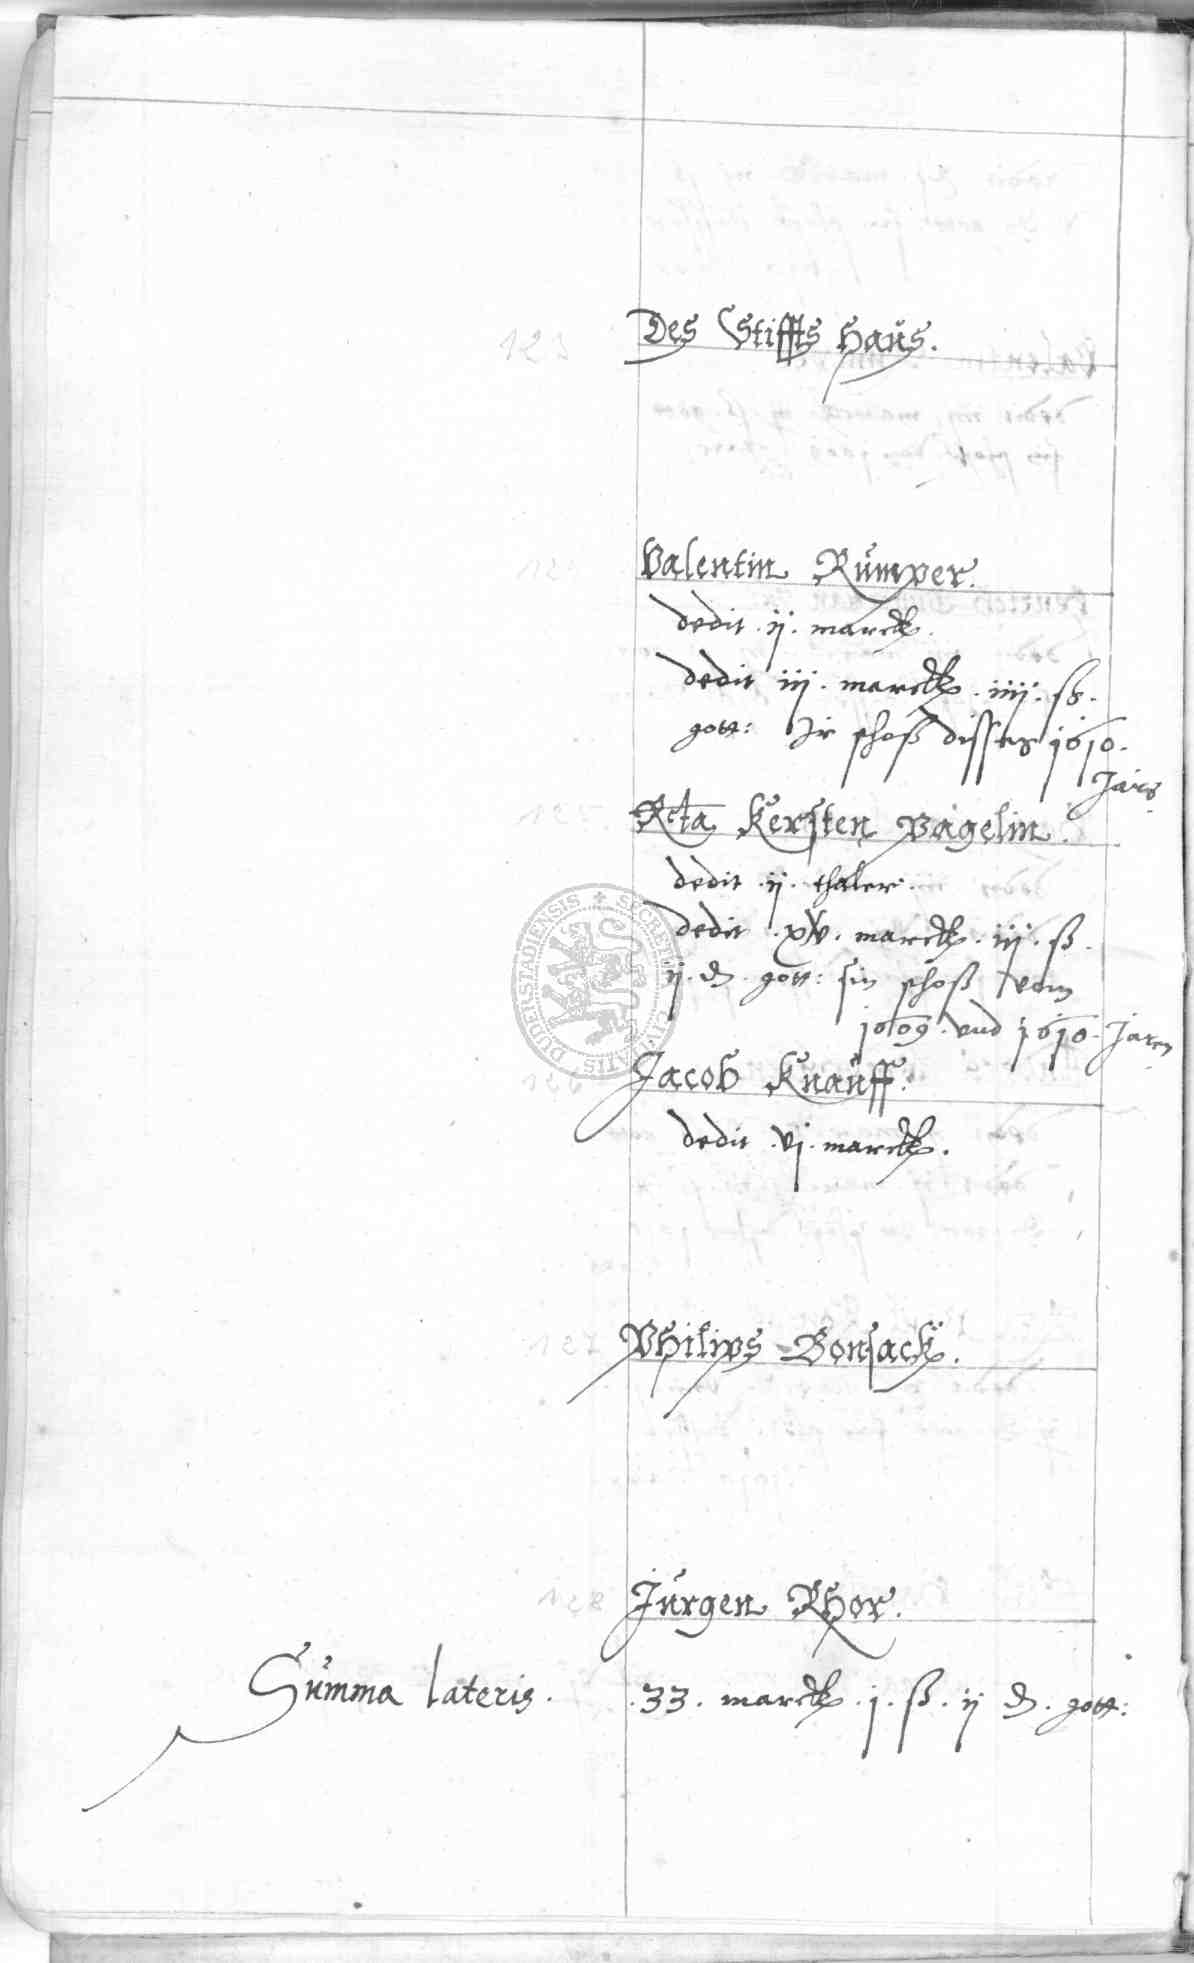 Des Stiffts Haus.
Valentin Rumper.
dedit .ij. marck.
dedit iij. marck. iiij. ß.
gott: Ir schoß disses 1610.
Jars
Rcta Kersten Vagelin.
dedit .ij. thaler.
dedit .xv. marck. iij. ß.
ij. d. gott: sin schoß vom
1609. vnd 1610. Jaren
Jacob Knauff.
dedit .vj. marck.
Philips Bonsack.
Jurgen Rhor.
Summa lateris. .33. marck .j. ß. ij d. gott:
SECRETUM CIVITATIS DUDERSTADIENSIS